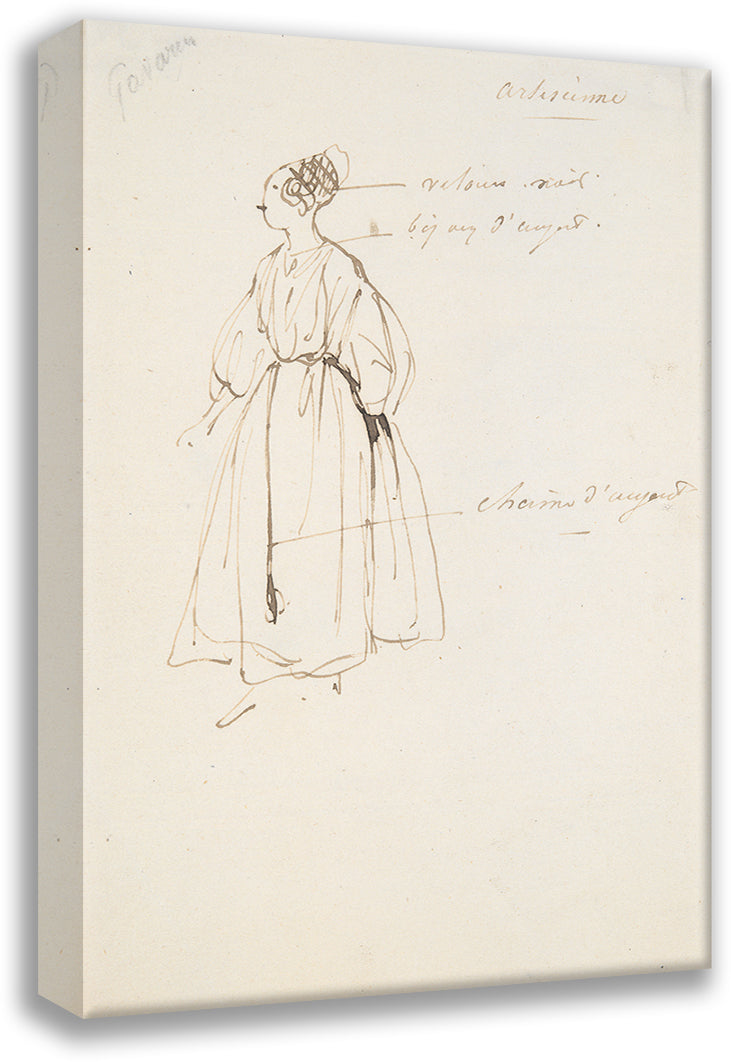 Gavarni
artesienne
velours noir.
bijoux d'argent.
chaine d'argent